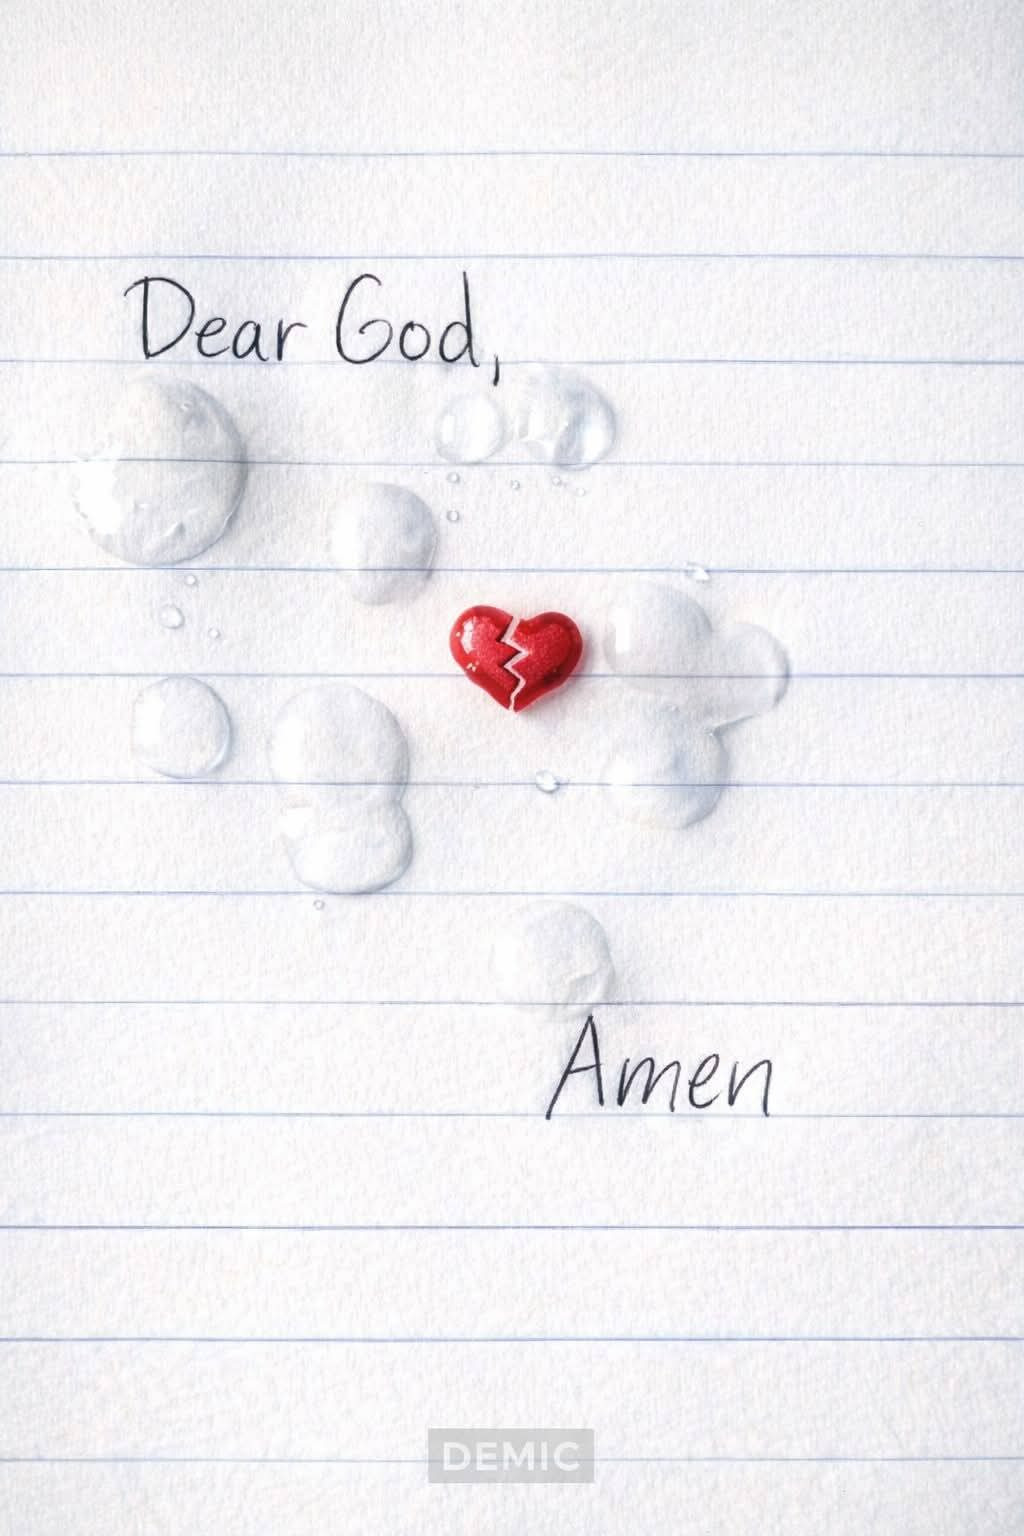 Dear God,
Amen
DEMIC